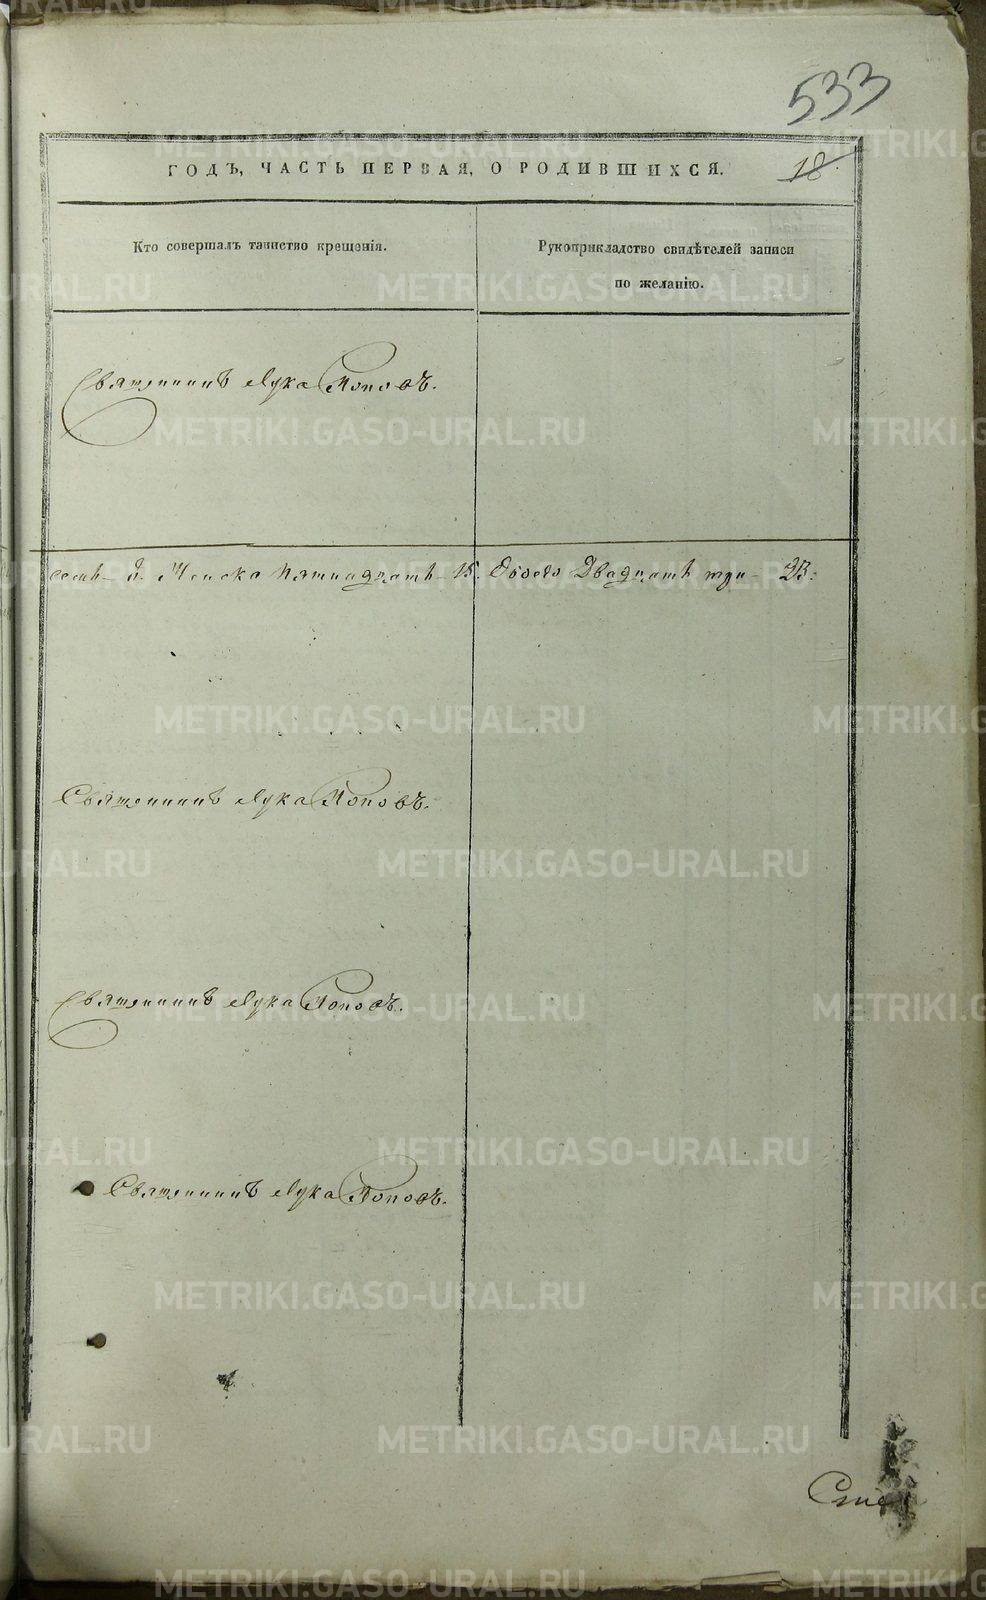 533
ГОДЪ, ЧАСТЬ ПЕРВАЯ, О РОДИВШИХСЯ.
18
Кто совершалъ таинство крещенія.
Рукоприкладство свидѣтелей записи
по желанію.
Священникъ Лука Поповъ.
Женска пятнадцать 15. Обоего Двадцать три 23.
Священникъ Лука Поповъ.
Священникъ Лука Поповъ.
Священникъ Лука Поповъ.
METRIKI.GASO-URAL.RU